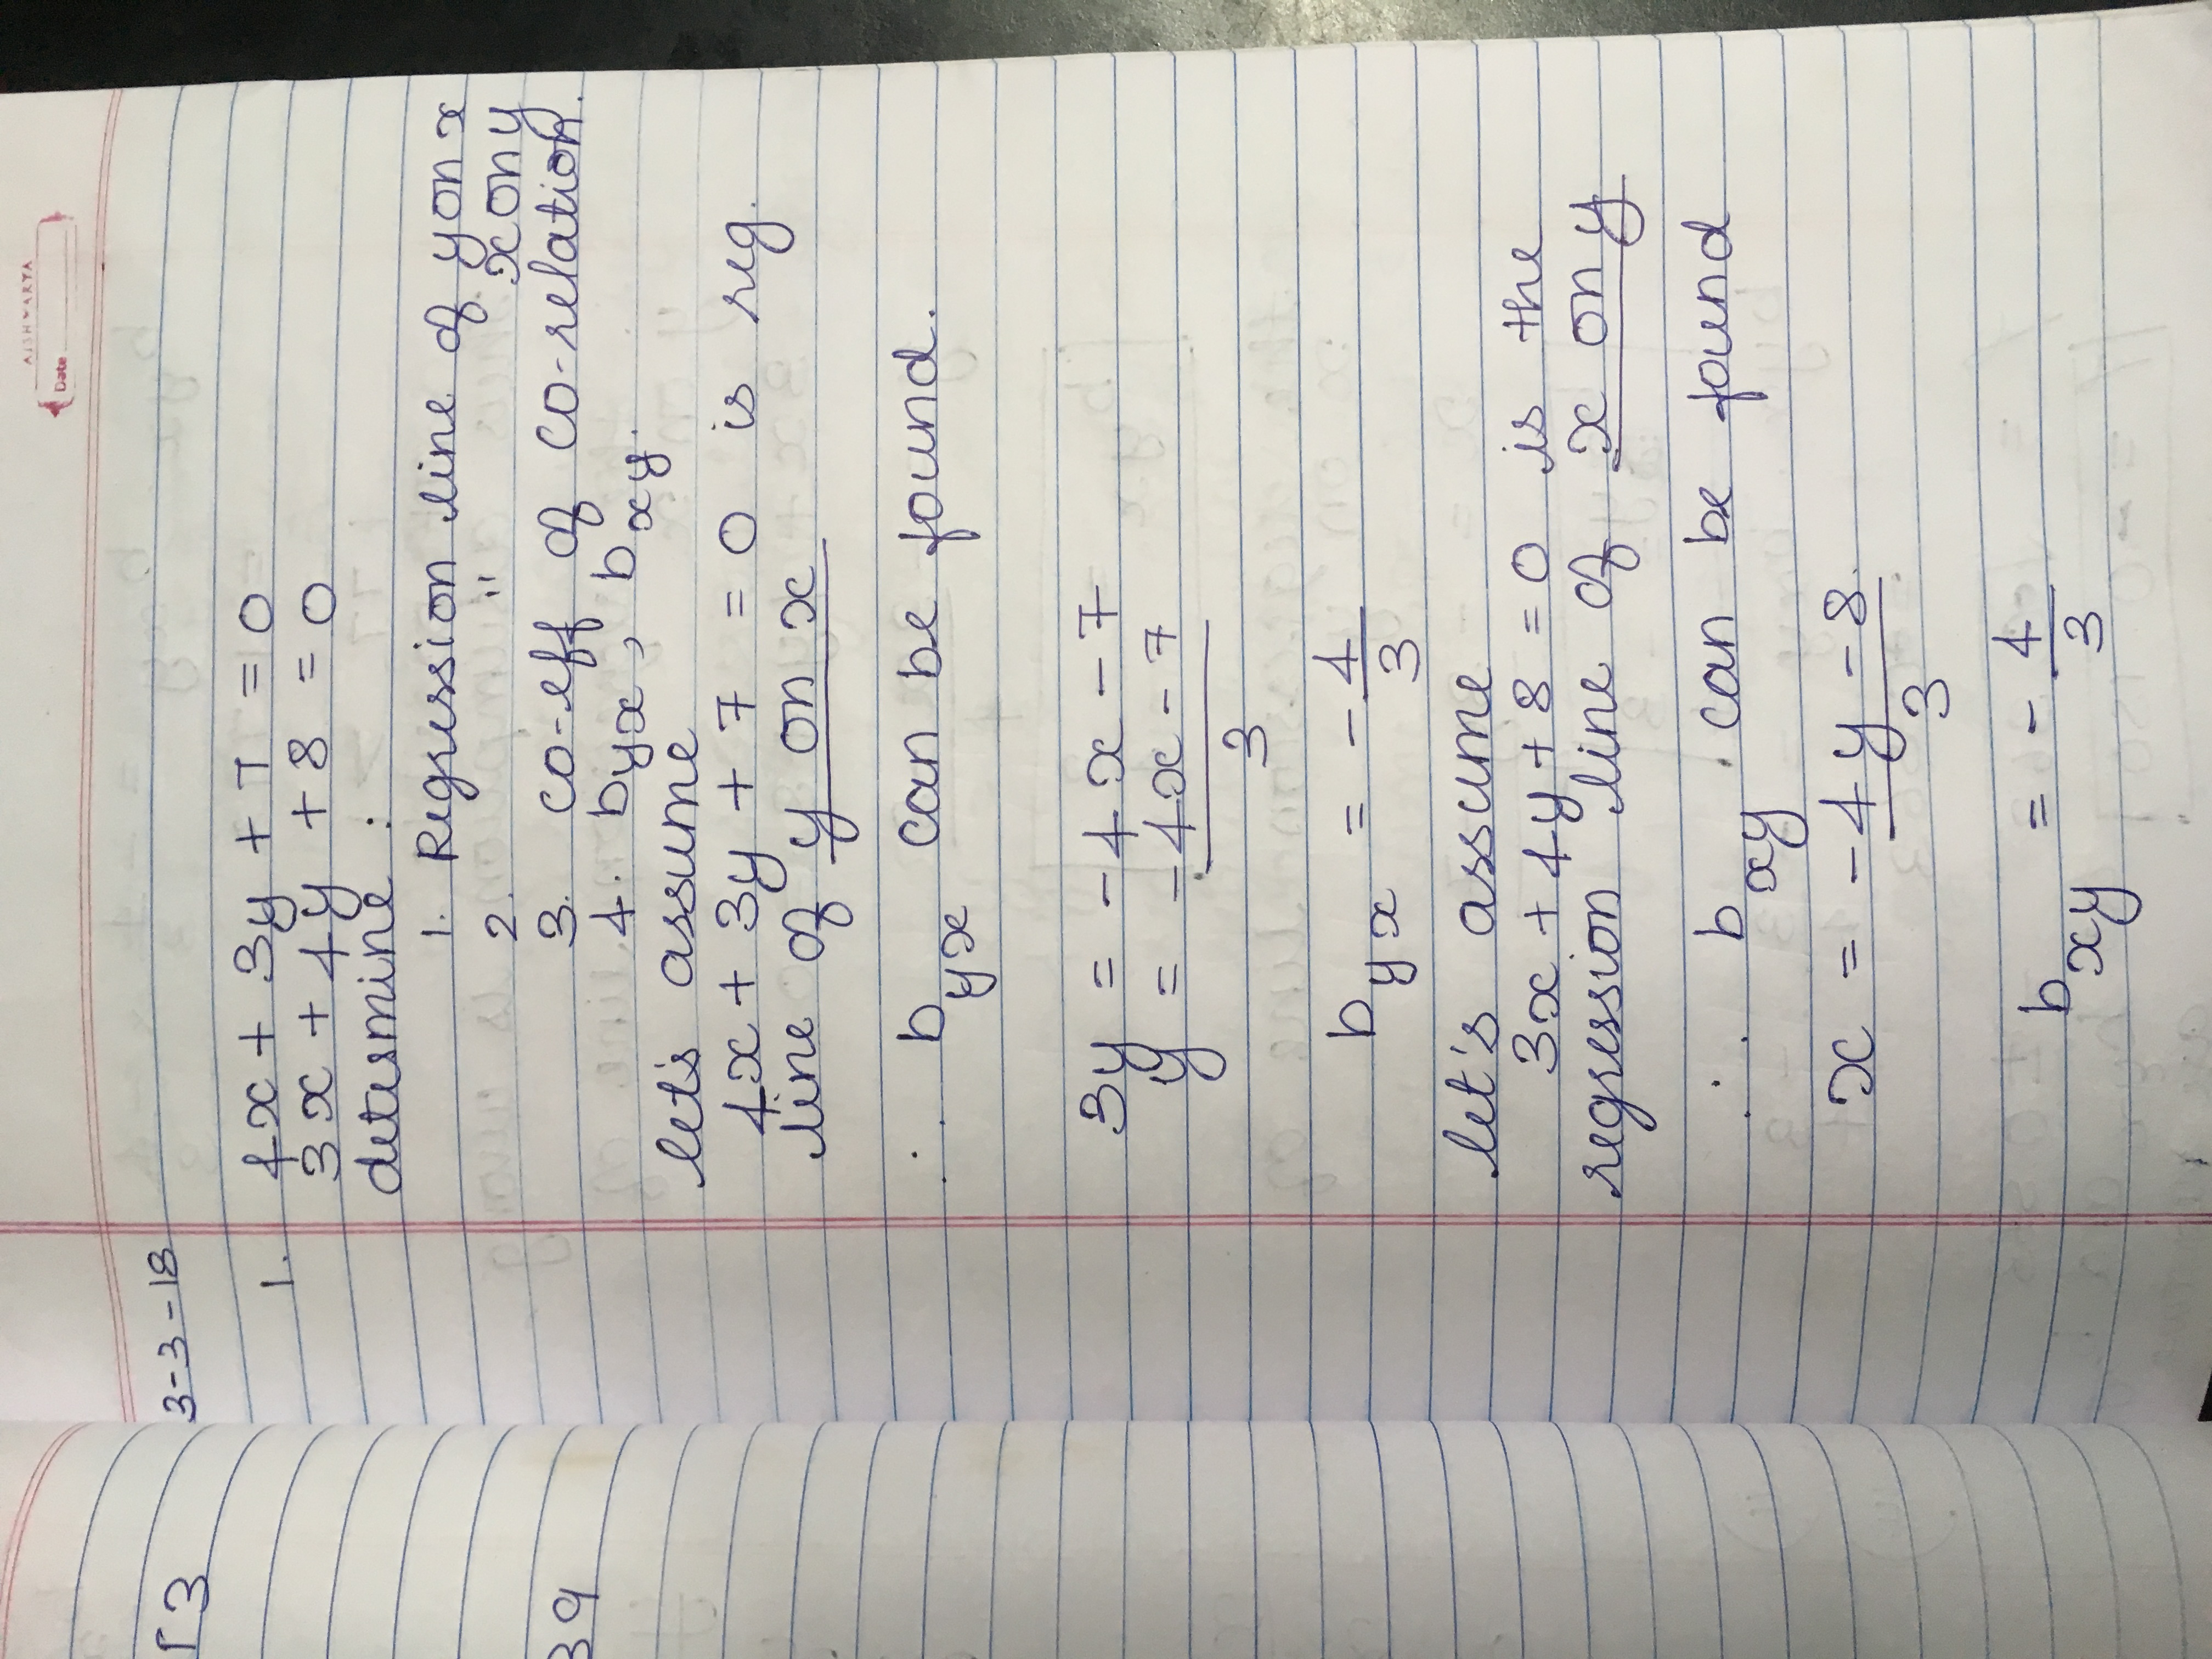 AISHWARYA
Date
13
39
3-3-18
1. 4x + 3y + 7 = 0
3x + 4y + 8 = 0
determine :
1. Regression line of y on x
2. " x on y
3. co-eff of co-relation.
4. byx, bxy.
let's assume
4x + 3y + 7 = 0 is reg.
line of y on x
∴ byx can be found.
3y = -4x - 7
y = -4x - 7
3
byx = - 4
3
let's assume
3x + 4y + 8 = 0 is the
regression line of x on y
∴ bxy can be found
x = -4y - 8
3
bxy = - 4
3